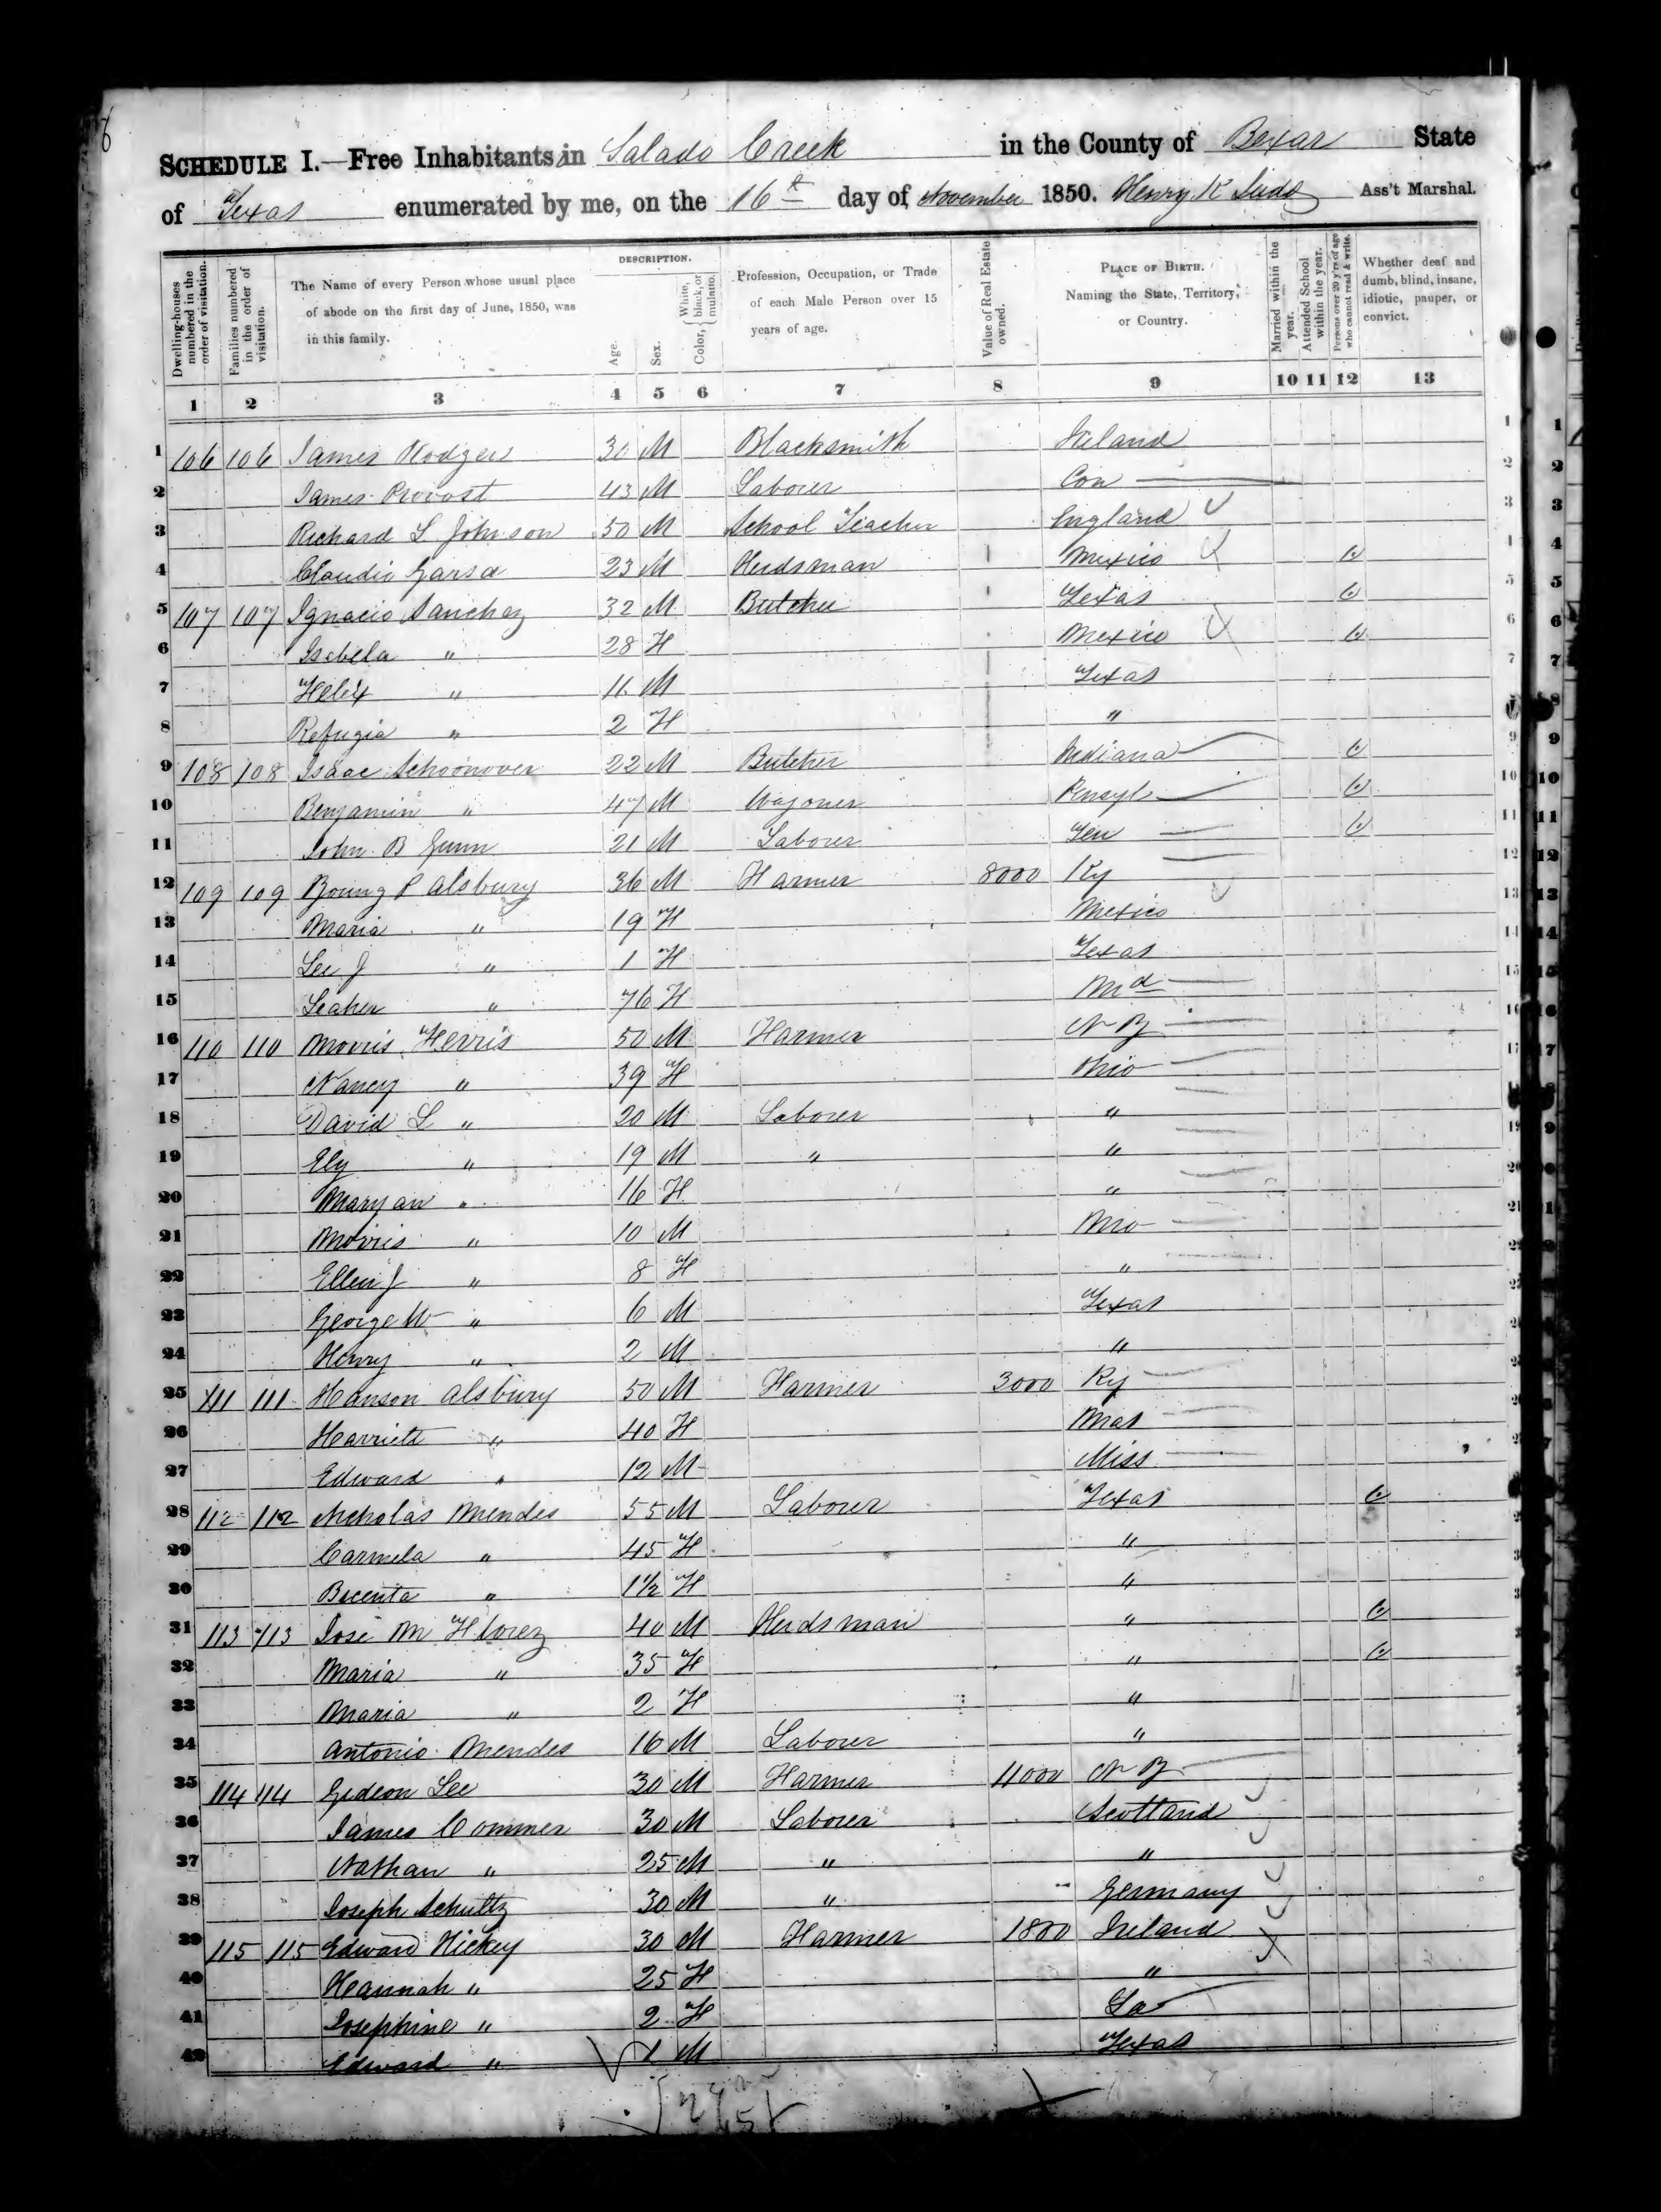 SCHEDULE I.—Free Inhabitants in Salado Creek in the County of Bexar State
of Texas enumerated by me, on the 16th day of November 1850. Henry K Ass't Marshal.
Dwelling-houses numbered in the order of visitation.
Families numbered in the order of visitation.
The Name of every Person whose usual place of abode on the first day of June, 1850, was in this family.
DESCRIPTION.
Age.
Sex.
Color, { White, black, or mulatto.
Profession, Occupation, or Trade of each Male Person over 15 years of age.
Value of Real Estate owned.
PLACE OF BIRTH. Naming the State, Territory, or Country.
Married within the year.
Attended School within the year.
Persons over 20 y'rs of age who cannot read & write.
Whether deaf and dumb, blind, insane, idiotic, pauper, or convict.
1 2 3 4 5 6 7 8 9 10 11 12 13
1 106 106 James Rodgers 30 M Blacksmith Ireland
2 James Provost 43 M Laborer Con
3 Richard L Johnson 50 M School Teacher England
4 Claudio Garsa 23 M Herdsman Mexico
5 107 107 Ignacio Sanchez 32 M Butcher Texas
6 Isabela " 28 F Mexico
7 Felix " 11 M Texas
8 Refugia " 2 F "
9 108 108 Isaac Schoonover 22 M Butcher Indiana
10 Benjamin " 47 M Wagoner Pensyl
11 John B Gunn 21 M Laborer Ten
12 109 109 Young P Alsbury 36 M Farmer 8000 Ky
13 Maria " 19 F Mexico
14 Lee J " 1 F Texas
15 Leaher " 76 F Md
16 110 110 Morris Ferris 50 M Farmer N Y
17 Nancy " 39 F Ohio
18 David L " 20 M Laborer "
19 Ely " 19 M " "
20 Mary an " 16 F "
21 Morris " 10 M Mo
22 Ellen J " 8 F "
23 George W " 6 M Texas
24 Henry " 2 M "
25 111 111 Hanson Alsbury 50 M Farmer 3000 Ky
26 Harriett " 40 F Mas
27 Edward " 12 M Miss
28 112 112 Nicholas Mendes 55 M Laborer Texas
29 Carmela " 45 F "
30 Bicenta " 1½ F "
31 113 113 Jose M Florez 40 M Herdsman "
32 Maria " 35 F "
33 Maria " 2 F "
34 Antonio Mendes 16 M Laborer "
35 114 114 Gideon Lee 30 M Farmer 4000 N Y
36 James Conner 30 M Laborer Scotland
37 Nathan " 25 M " "
38 Joseph Schultz 30 M " Germany
39 115 115 Edward Hickey 30 M Farmer 1800 Ireland
40 Hannah " 25 F "
41 Josephine " 2 F La
42 Edward " 1 M Texas